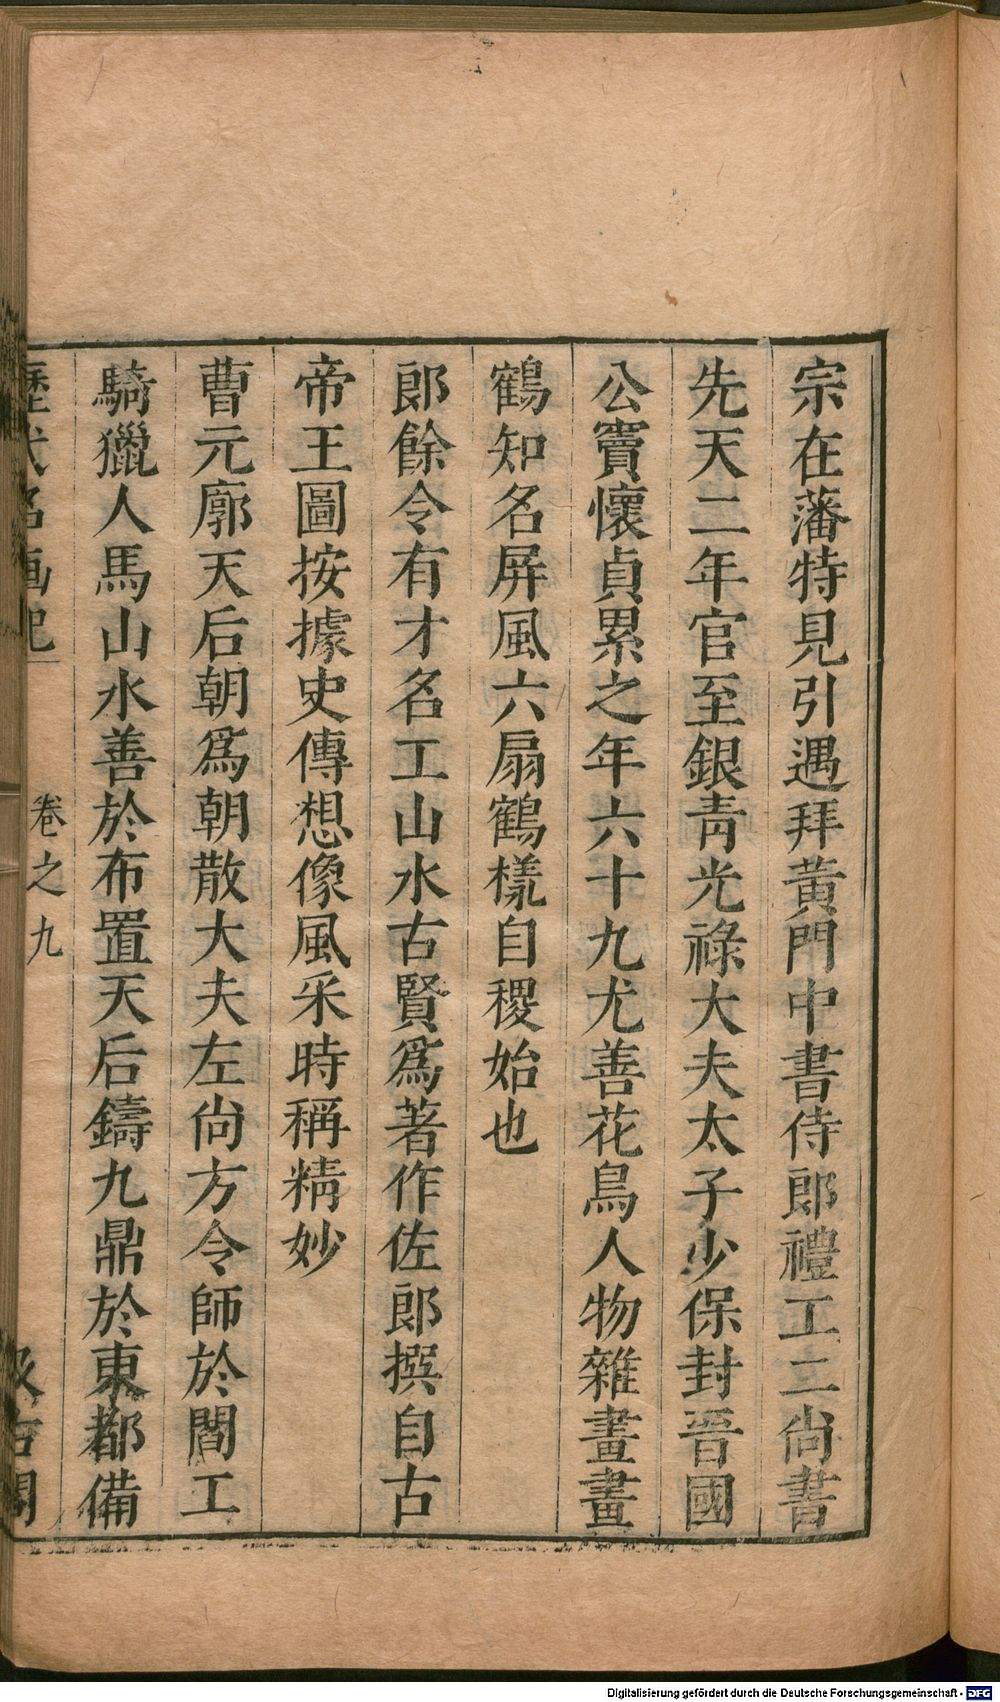 宗在藩特見引遇拜黃門中書侍郎禮工二尚書
先天二年官至銀青光祿大夫太子少保封晉國
公竇懷貞累之年六十九尤善花鳥人物雜畫畫
鶴知名屏風六扇鶴樣自稷始也
郎餘令有才名工山水古賢爲著作佐郎撰自古
帝王圖按據史傳想像風采時稱精妙
曹元廓天后朝爲朝散大夫左尚方令師於閻工
騎獵人馬山水善於布置天后鑄九鼎於東都備
歷代名画記 卷之九 汲古閣
Digitalisierung gefördert durch die Deutsche Forschungsgemeinschaft - DFG